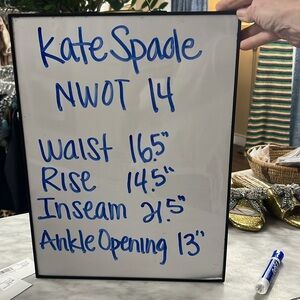 Kate Spade
NWOT 14
Waist 16.5"
Rise 14.5"
Inseam 21.5"
Ankle Opening 13"